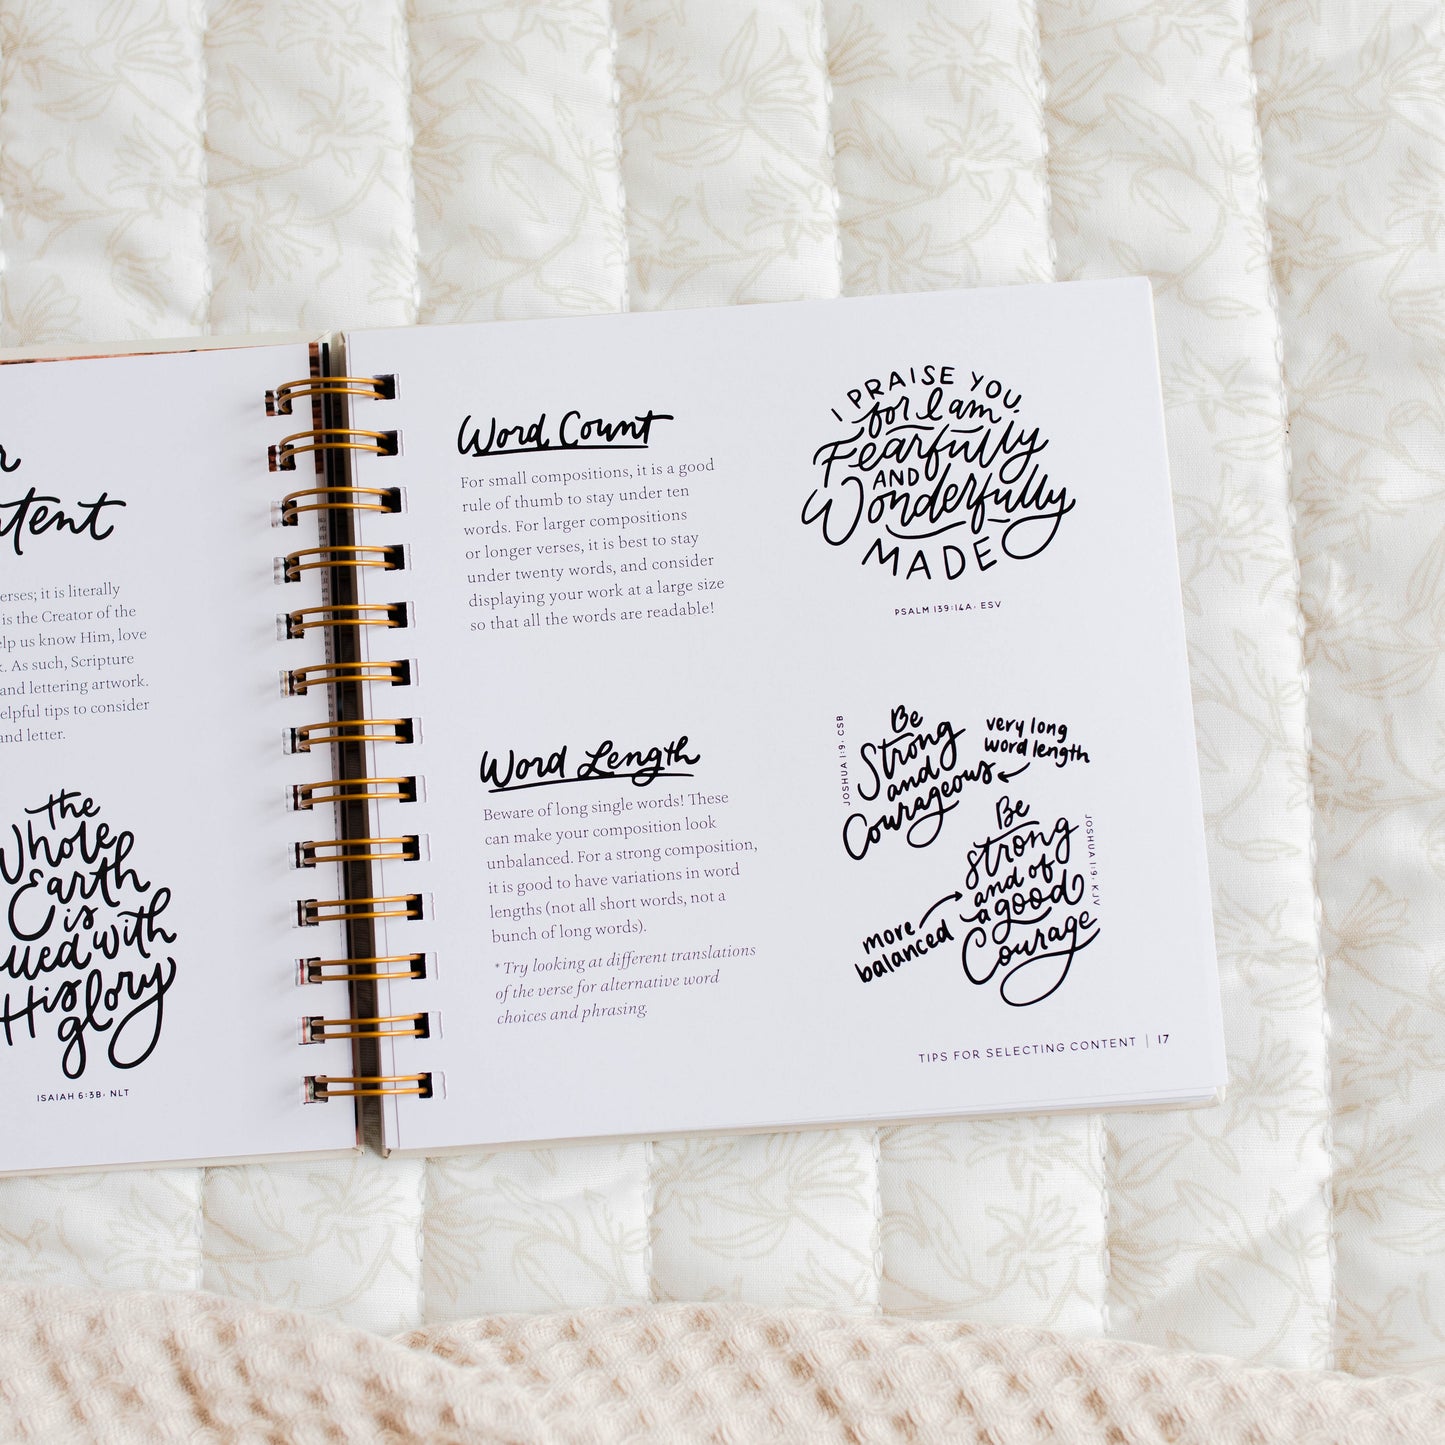 erses; it is literally
is the Creator of the
elp us know Him, love
As such, Scripture
and lettering artwork.
elpful tips to consider
and letter.
the
Whole
Earth
is
with
His
glory
ISAIAH 6:3B, NLT
Word Count
For small compositions, it is a good
rule of thumb to stay under ten
words. For larger compositions
or longer verses, it is best to stay
under twenty words, and consider
displaying your work at a large size
so that all the words are readable!
I PRAISE YOU
for I am
Fearfully
AND
Wonderfully
MADE
PSALM 139:14A, ESV
Word Length
Beware of long single words! These
can make your composition look
unbalanced. For a strong composition,
it is good to have variations in word
lengths (not all short words, not a
bunch of long words).
* Try looking at different translations
of the verse for alternative word
choices and phrasing.
JOSHUA 1:9, CSB
Be
Strong
and
Courageous
very long
word length
Be
strong
and of
a good
Courage
JOSHUA 1:9, KJV
more
balanced
TIPS FOR SELECTING CONTENT | 17